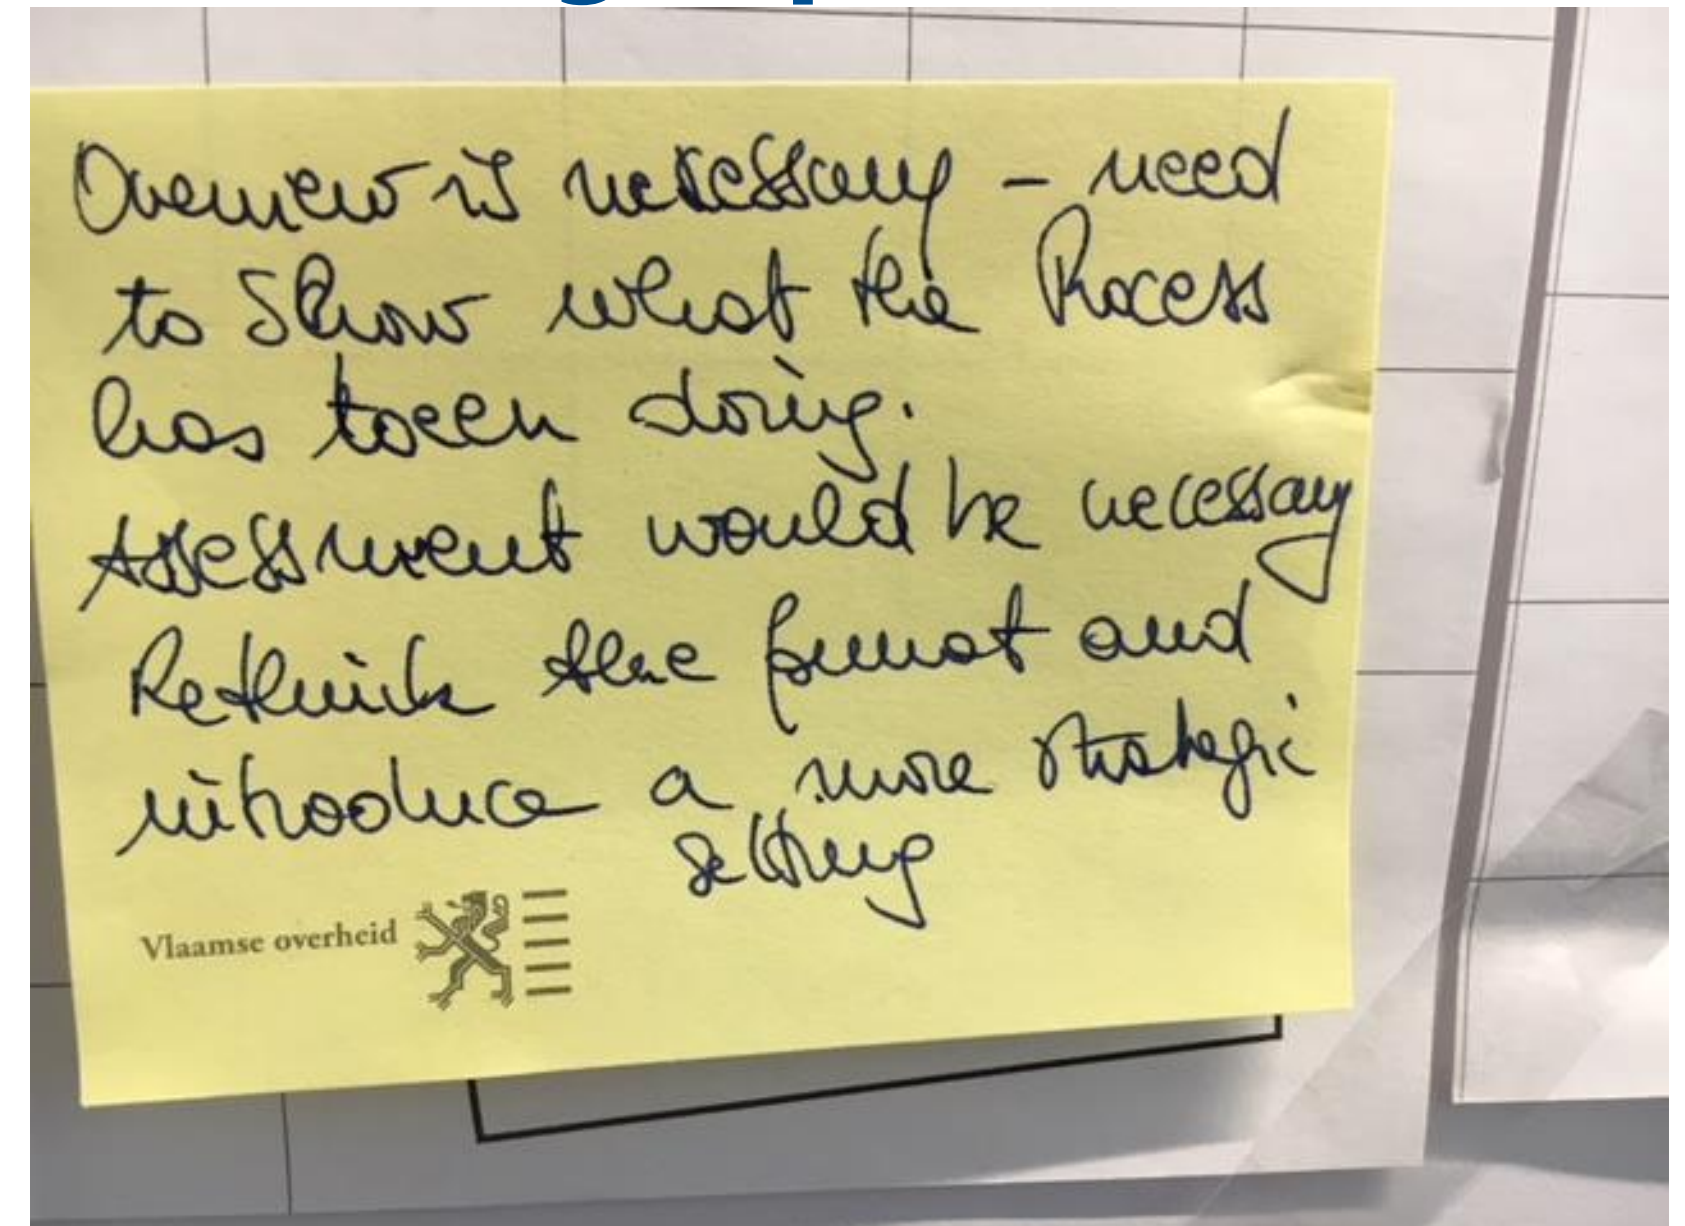 Overview is necessary – need
to Show what the Process
has been doing.
Assessment would be necessary
Rethink the format and
introduce a more strategic
setting
Vlaamse overheid